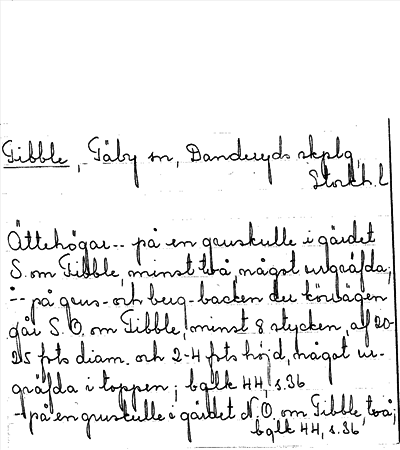 Tibble, Täby sn, Danderyds skplg,
Stockh. l
Ättehögar -- på en gruskulle i gärdet
S. om Tibble, minst två, något urgräfda;
-- på grus- och berg-backen der körvägen
går S.O. om Tibble, minst 8 stycken, af 20-
25 fots diam. och 2-4 fots höjd, något ur-
gräfda i toppen; bglk 44, s. 36
- på en gruskulle i gärdet N.O. om Tibble, två;
bglk 44, s. 36